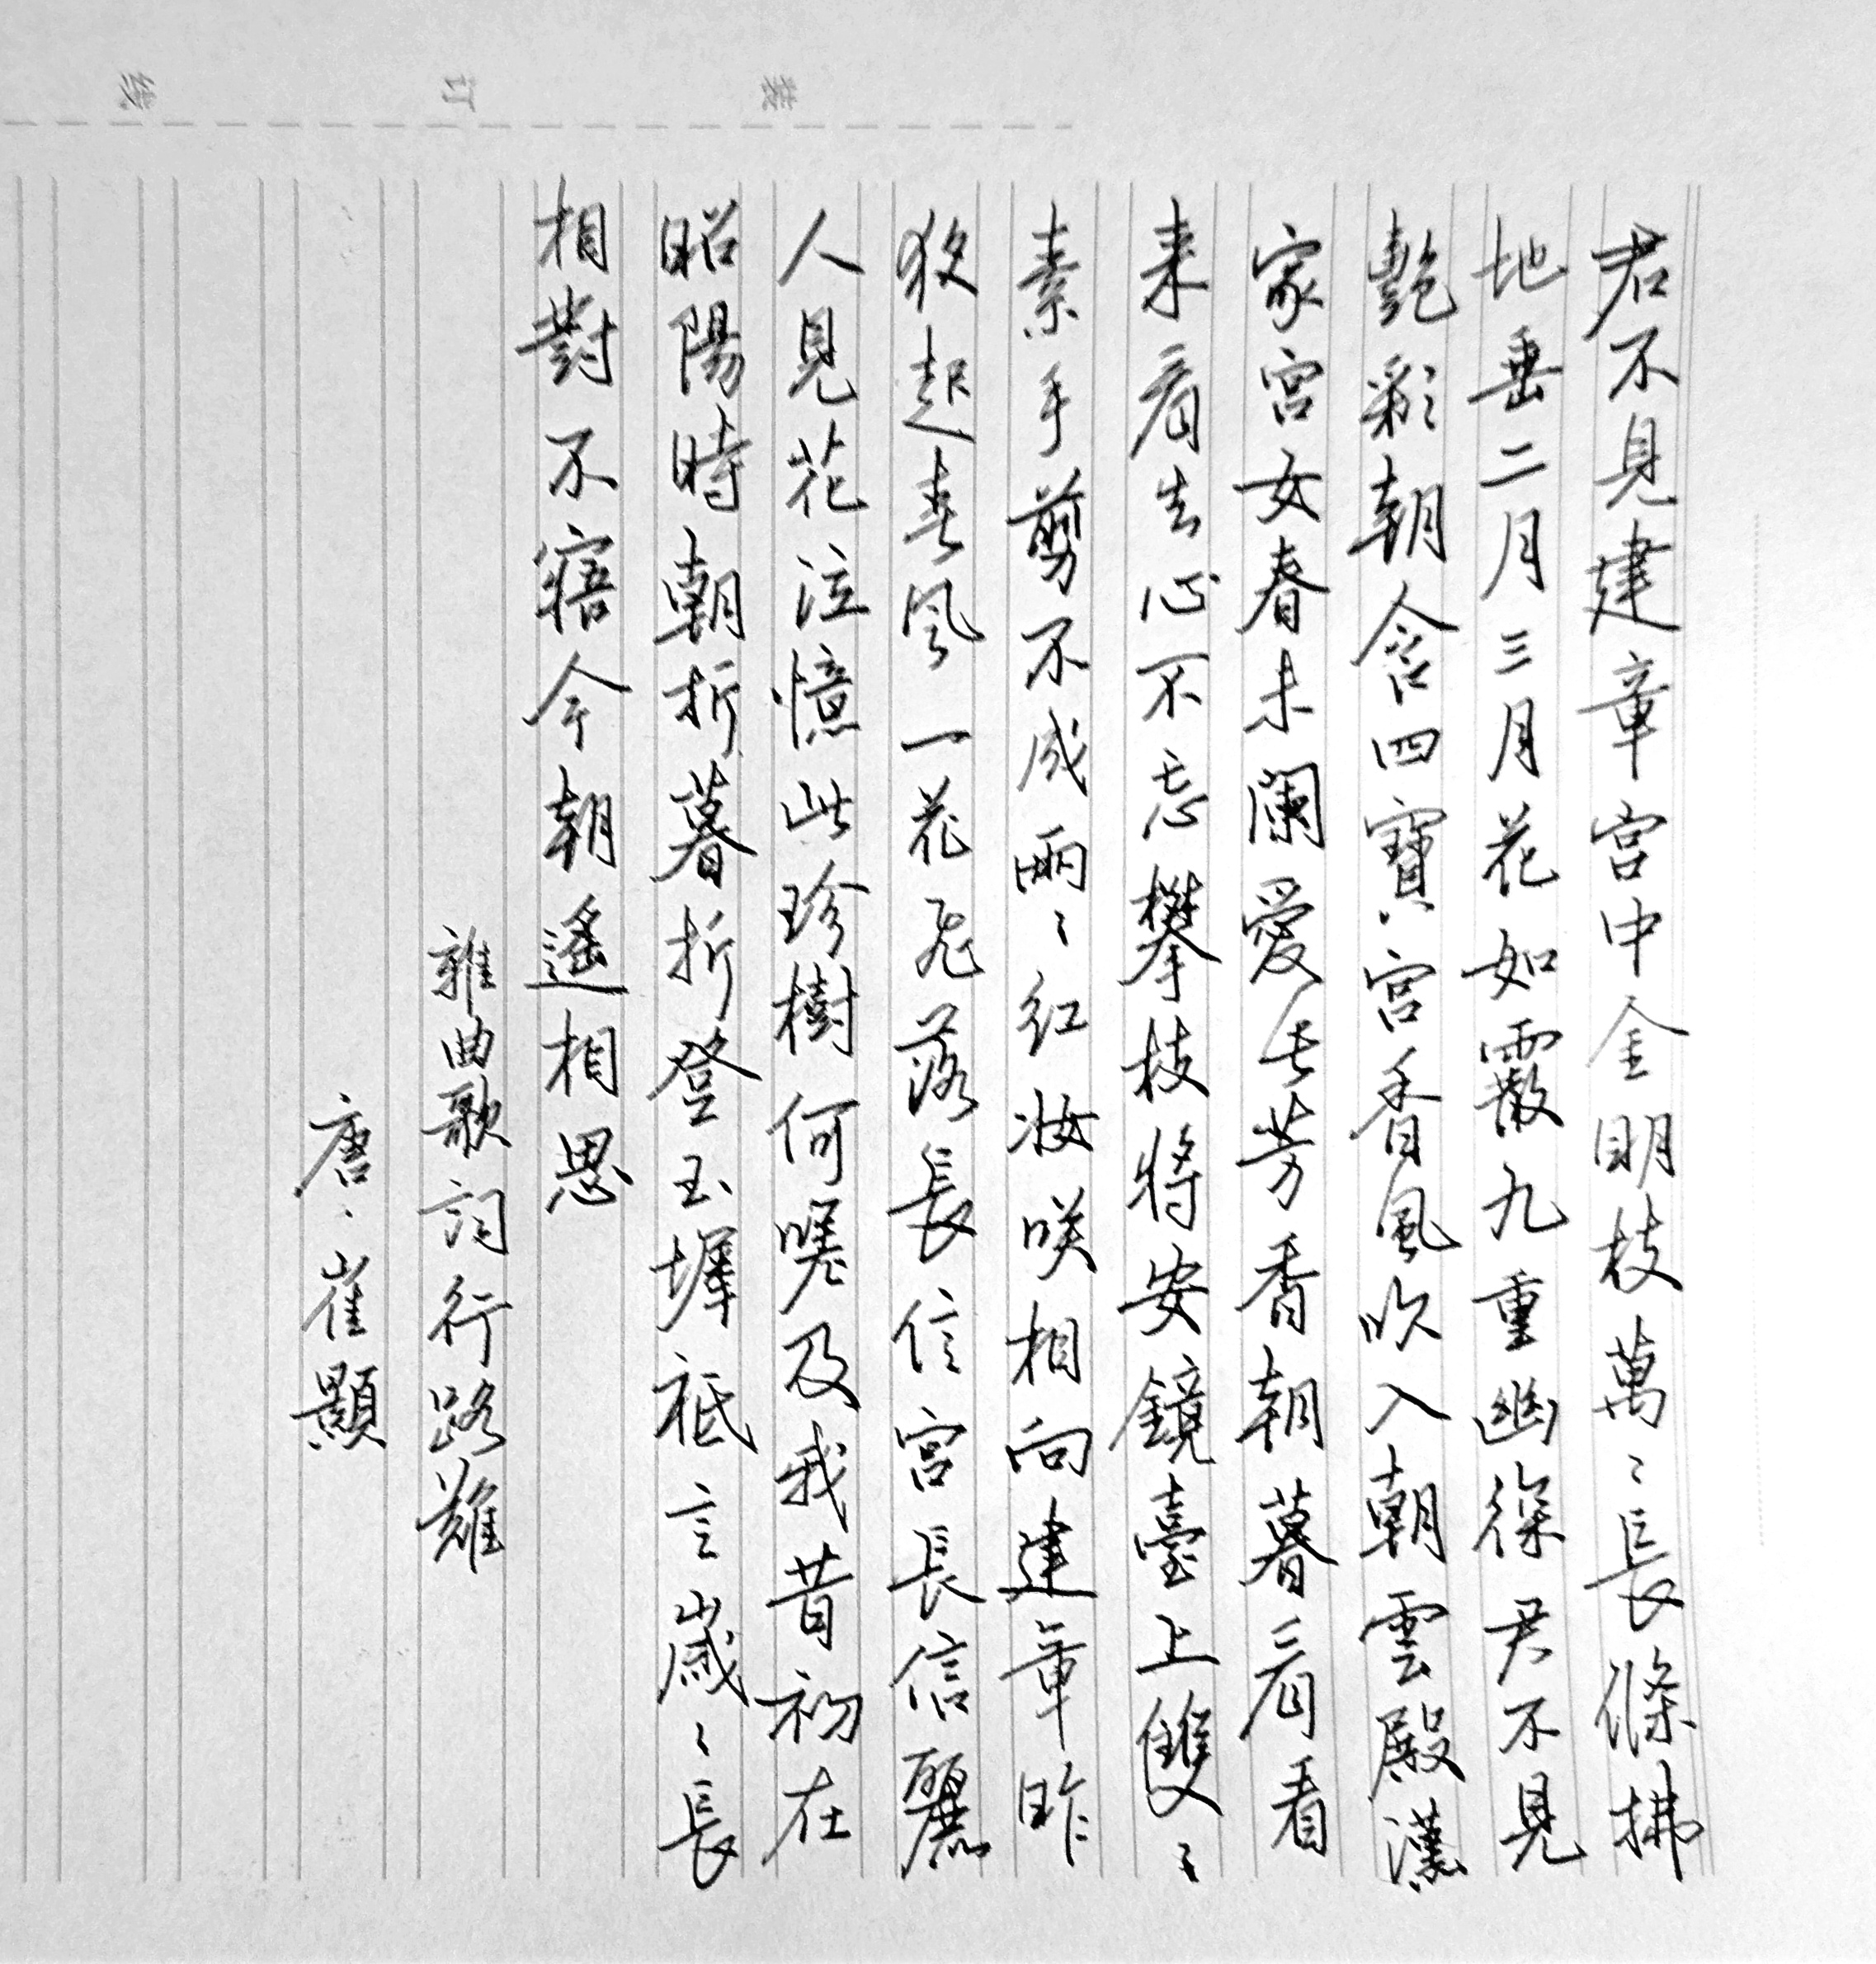 君不見建章宮中金明枝萬〻長條拂
地垂二月三月花如霰九重幽深君不見
艷彩朝含四寶宮香風吹入朝雲殿漢
家宮女春未闌愛此芳香朝暮看看
来看去心不忘攀枝將安鏡臺上雙〻
素手剪不成兩〻红妝咲相向建章昨
夜起春風一花飛落長信宮長信麗
人見花泣憶此珍樹何嗟及我昔初在
昭陽時朝折暮折登玉墀祗言歲〻長
相對不寤今朝遙相思
雜曲歌詞行路難
唐·崔顥
装订线